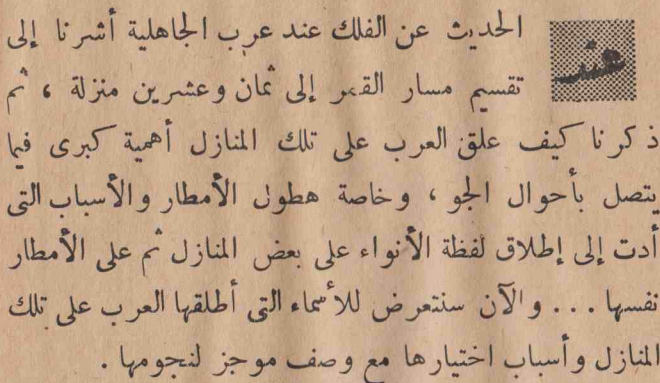 عند الحديث عن الفلك عند عرب الجاهلية أشرنا إلى
تقسيم مسار القمر إلى ثمان وعشرين منزلة ، ثم
ذكرنا كيف علق العرب على تلك المنازل أهمية كبرى فيما
يتصل بأحوال الجو ، وخاصة هطول الأمطار والأسباب التى
أدت إلى إطلاق لفظة الأنواء على بعض المنازل ثم على الأمطار
نفسها ... والآن سنتعرض للأسماء التى أطلقها العرب على تلك
المنازل وأسباب اختيارها مع وصف موجز لنجومها .